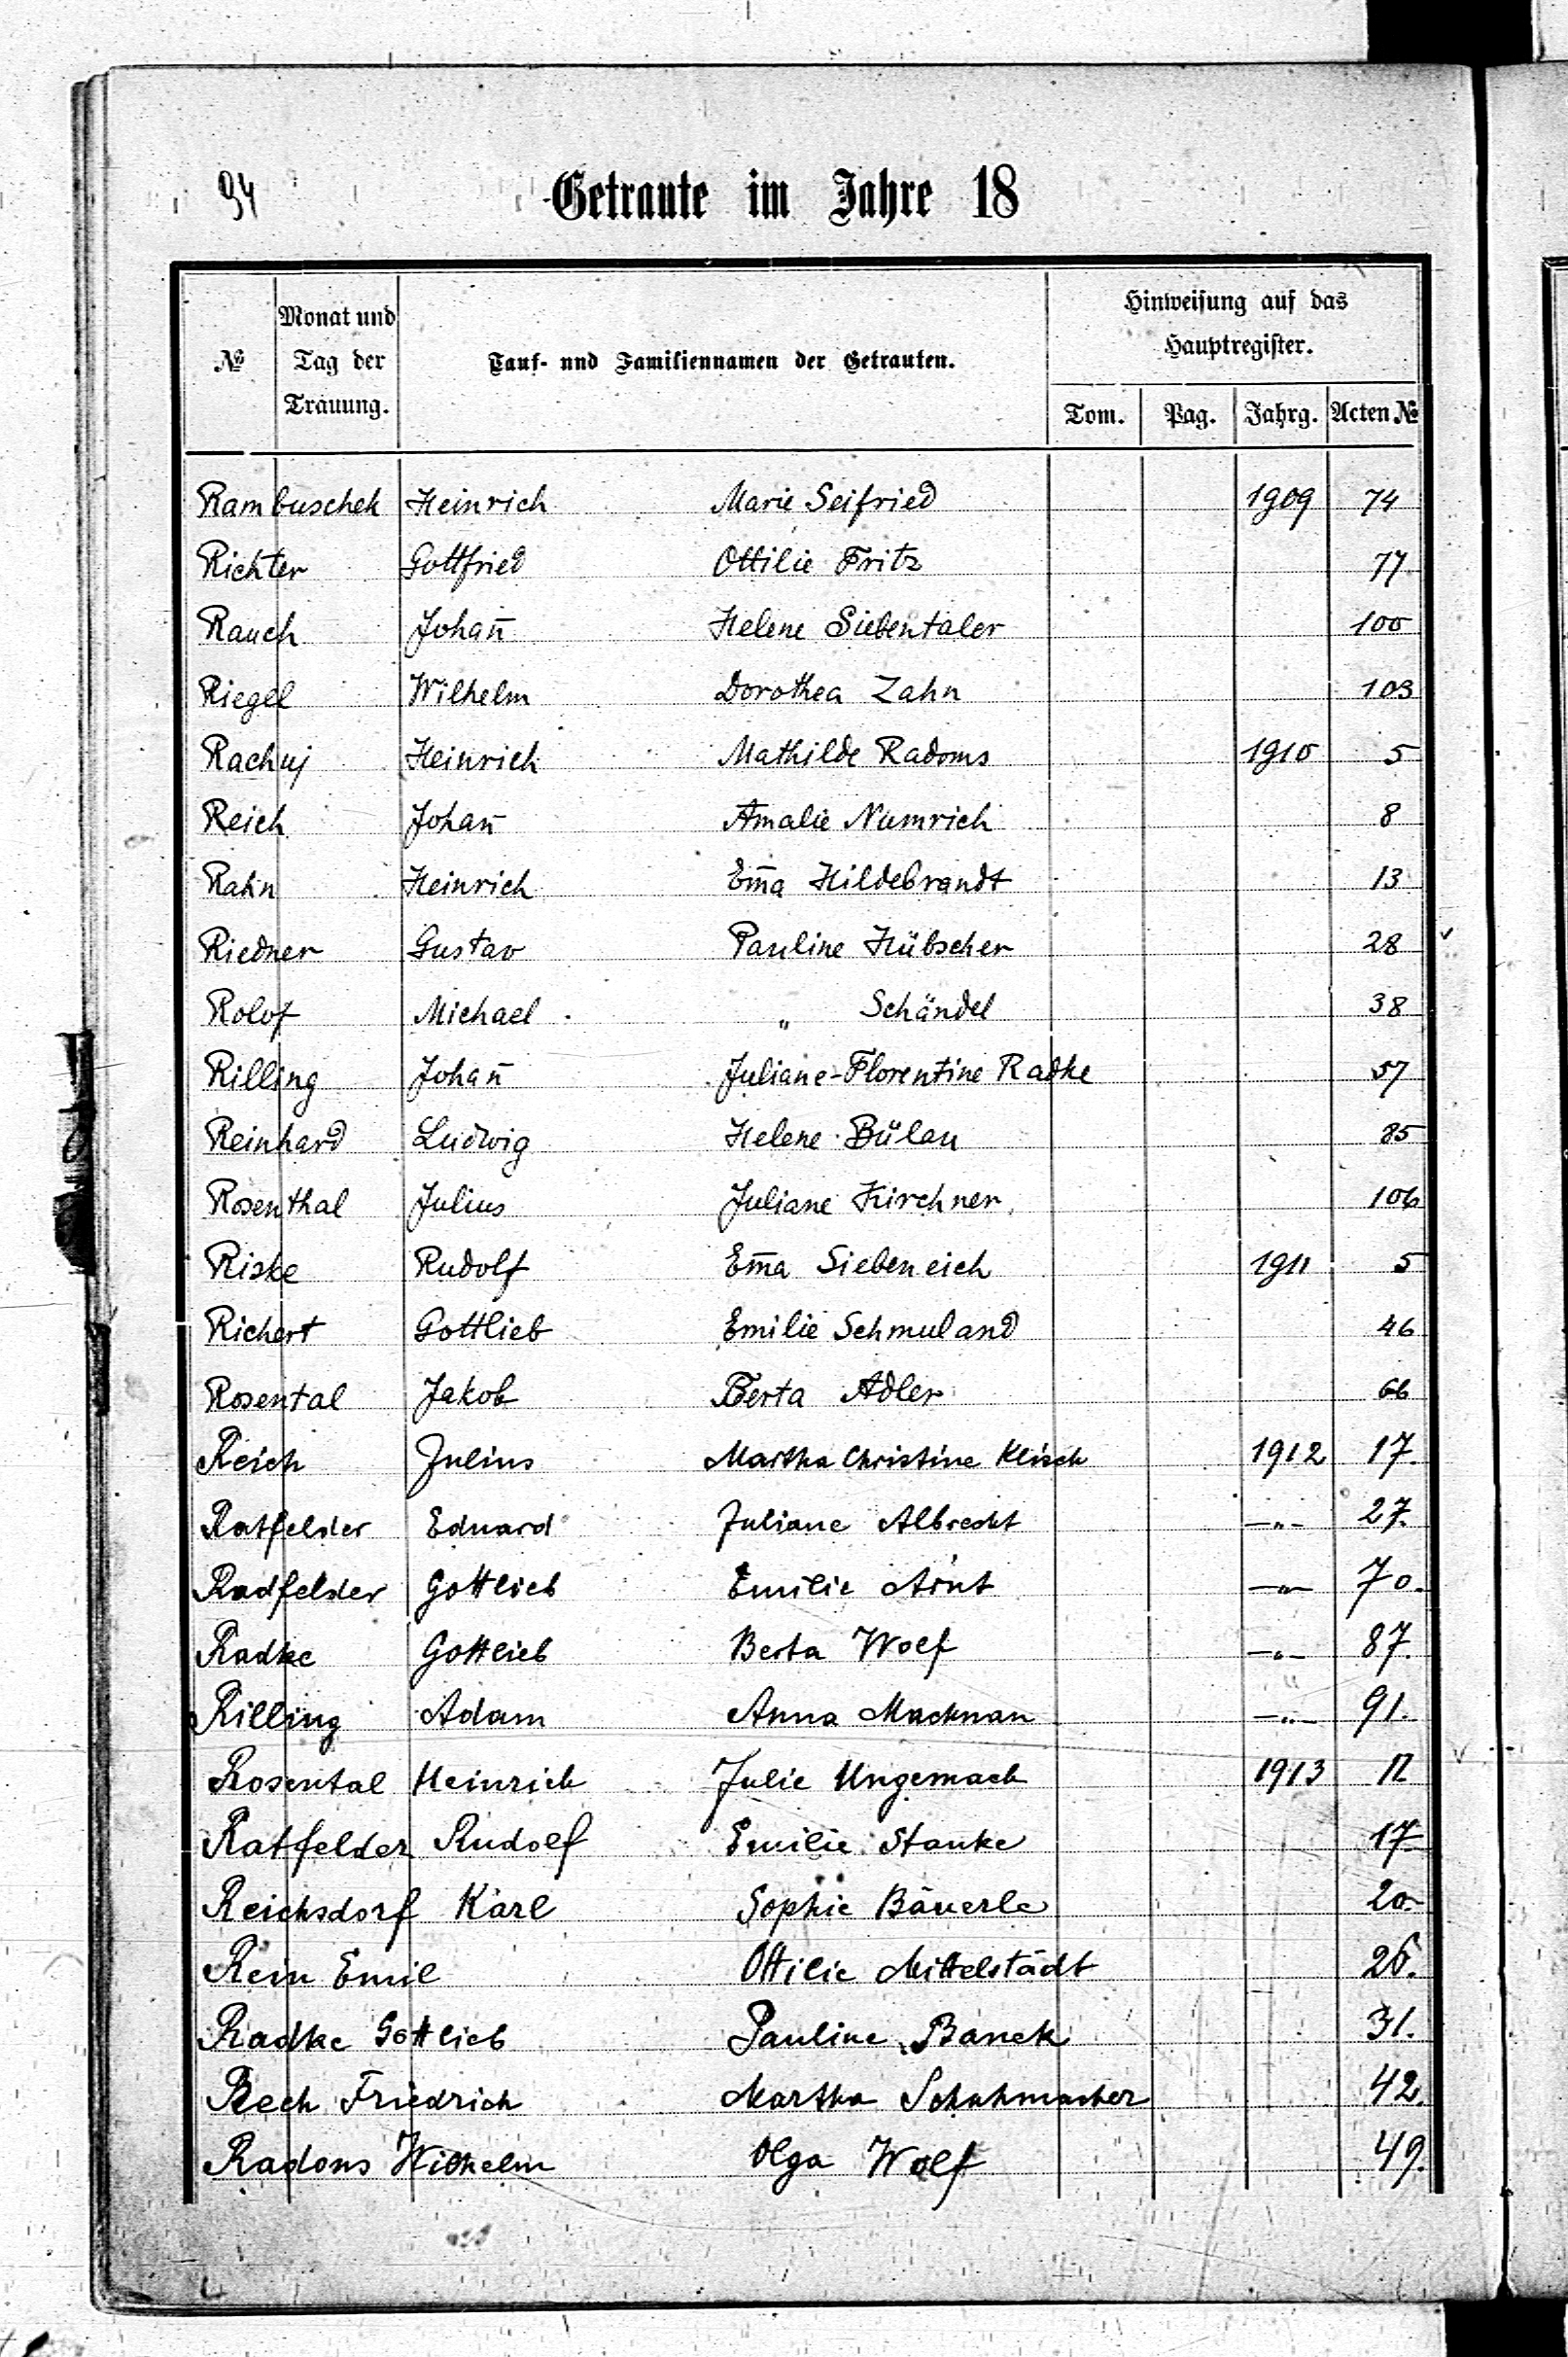 94
Getraute im Jahre 18
№
Monat und
Tag der
Trauung.
Tauf- und Familiennamen der Getrauten.
Hinweisung auf das
Hauptregister.
Tom. Pag. Jahrg. Acten №
Rambuschek Heinrich Marie Seifried 1909 74
Richter Gottfried Ottilie Fritz 77
Rauch Johan̄ Helene Siebentaler 100
Riegel Wilhelm Dorothea Zahn 103
Rachuj Heinrich Mathilde Radoms 1910 5
Reich Johan̄ Amalie Numrich 8
Rahn Heinrich Em̄a Hildebrandt 13
Riedner Gustav Pauline Hübscher 28
Rolof Michael " Schändel 38
Rilling Johan̄ Juliane-Florentine Radke 57
Reinhard Ludwig Helene Bülau 85
Rosenthal Julius Juliane Kirchner 106
Riske Rudolf Em̄a Siebeneich 1911 5
Richert Gottlieb Emilie Schmuland 46
Rosental Jakob Berta Adler 66
Reich Julius Martha Christine Klisch 1912 17.
Ratfelder Eduard Juliane Albrecht —"— 27.
Radfelder Gottlieb Emilie Arnt —"— 70.
Radke Gottlieb Berta Wolf —"— 87.
Rilling Adam Anna Macknan —"— 91.
Rosental Heinrich Julie Ungemach 1913 12
Ratfelder Rudolf Emilie Stanke 17
Reichsdorf Karl Sophie Bäuerle 20.
Rein Emil Ottilie Mittelstädt 26.
Radke Gottlieb Pauline Banek 31.
Rech Friedrich Martha Schuhmacher 42.
Radons Wilhelm Olga Wolf 49.